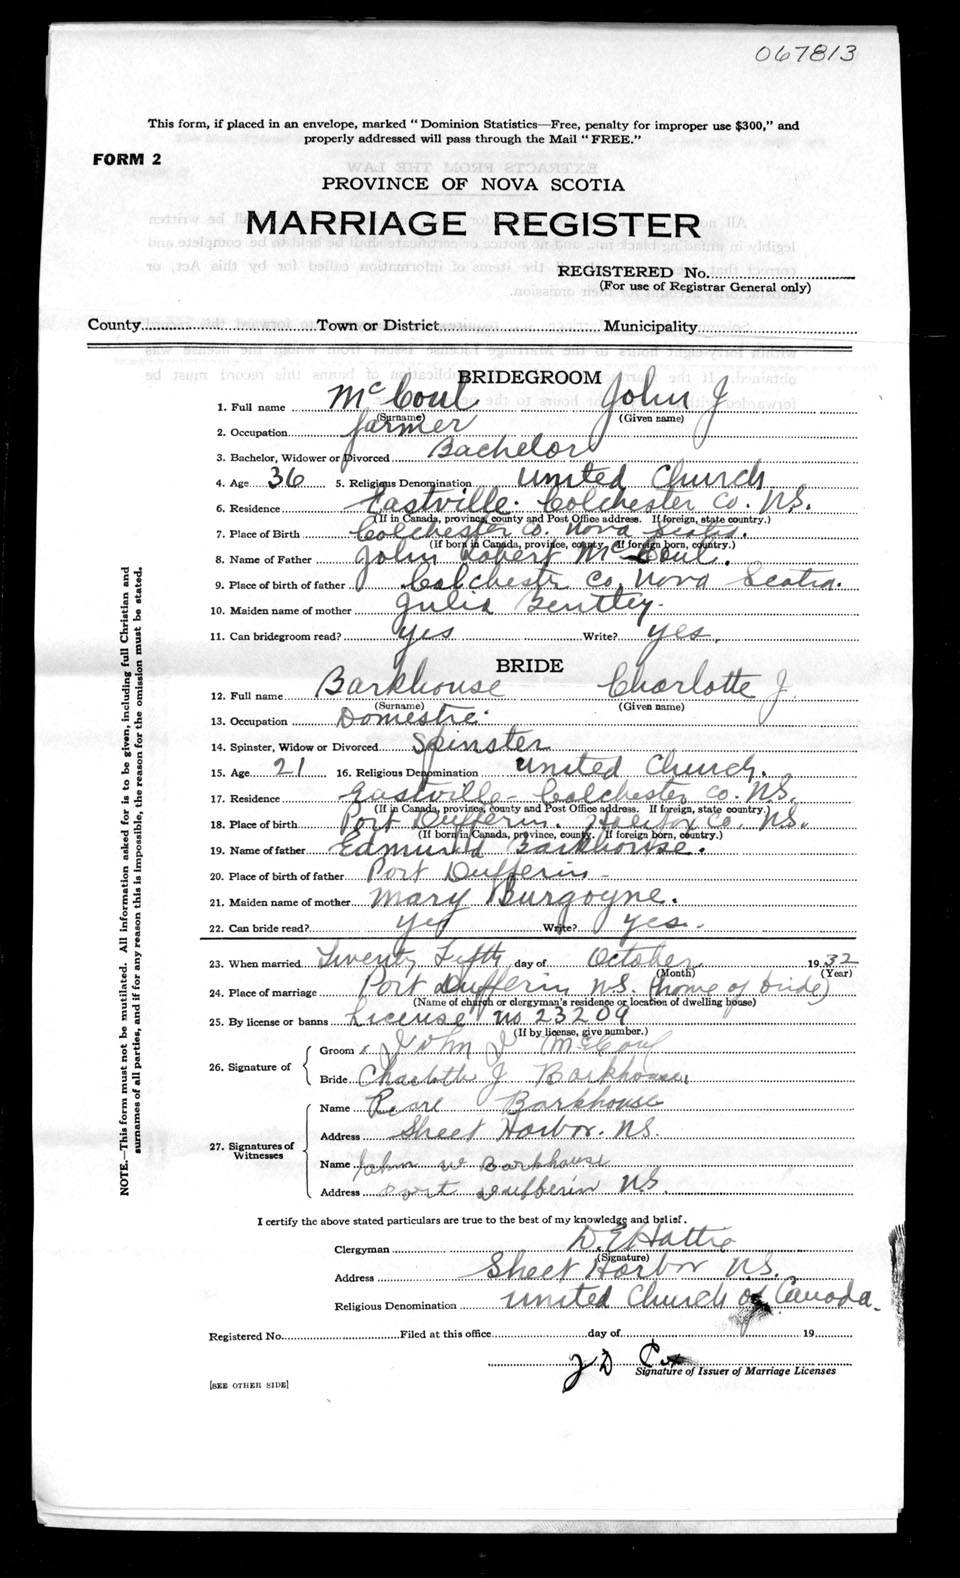 067813
This form, if placed in an envelope, marked "Dominion Statistics—Free, penalty for improper use $300," and
properly addressed will pass through the Mail "FREE."
FORM 2
PROVINCE OF NOVA SCOTIA
MARRIAGE REGISTER
REGISTERED No.
(For use of Registrar General only)
County Town or District Municipality
BRIDEGROOM
1. Full name McCoul John J
(Surname) (Given name)
2. Occupation farmer
3. Bachelor, Widower or Divorced Bachelor
4. Age 36 5. Religious Denomination United Church
6. Residence Eastville. Colchester Co. N.S.
(If in Canada, province, county and Post Office address. If foreign, state country.)
7. Place of Birth Colchester Co. Nova Scotia.
(If born in Canada, province, county. If foreign born, country.)
8. Name of Father John Robert McCoul.
9. Place of birth of father Colchestr Co. Nova Scotia.
10. Maiden name of mother Julia Bentley.
11. Can bridegroom read? yes Write? yes,
BRIDE
12. Full name Barkhouse Charlotte J
(Surname) (Given name)
13. Occupation Domestic.
14. Spinster, Widow or Divorced Spinster
15. Age 21 16. Religious Denomination United Church.
17. Residence Eastville - Colchester Co. N.S.
(If in Canada, province, county and Post Office address. If foreign, state country.)
18. Place of birth Port Dufferin. Halifax Co. N.S.
(If born in Canada, province, county. If foreign born, country.)
19. Name of father Edmund Barkhouse.
20. Place of birth of father Port Dufferin -
21. Maiden name of mother Mary Burgoyne.
22. Can bride read? yes Write? yes.
23. When married Twenty Fifth day of October 1932
(Month) (Year)
24. Place of marriage Port Dufferin N.S. (home of bride)
(Name of church or clergyman's residence or location of dwelling house)
25. By license or banns License No 23209
(If by license, give number.)
26. Signature of
Groom John J McCoul
Bride Charlotte J Barkhouse
27. Signatures of Witnesses
Name Pearl Barkhouse
Address Sheet Harbor. N.S.
Name John W Barkhouse
Address Port Dufferin N.S.
I certify the above stated particulars are true to the best of my knowledge and belief.
Clergyman D. E. Hattie
(Signature)
Address Sheet Harbor N.S.
Religious Denomination United Church of Canada.
Registered No. Filed at this office day of 19
J D
Signature of Issuer of Marriage Licenses
[SEE OTHER SIDE]
NOTE.—This form must not be mutilated. All information asked for is to be given, including full Christian and
surnames of all parties, and if for any reason this is impossible, the reason for the omission must be stated.